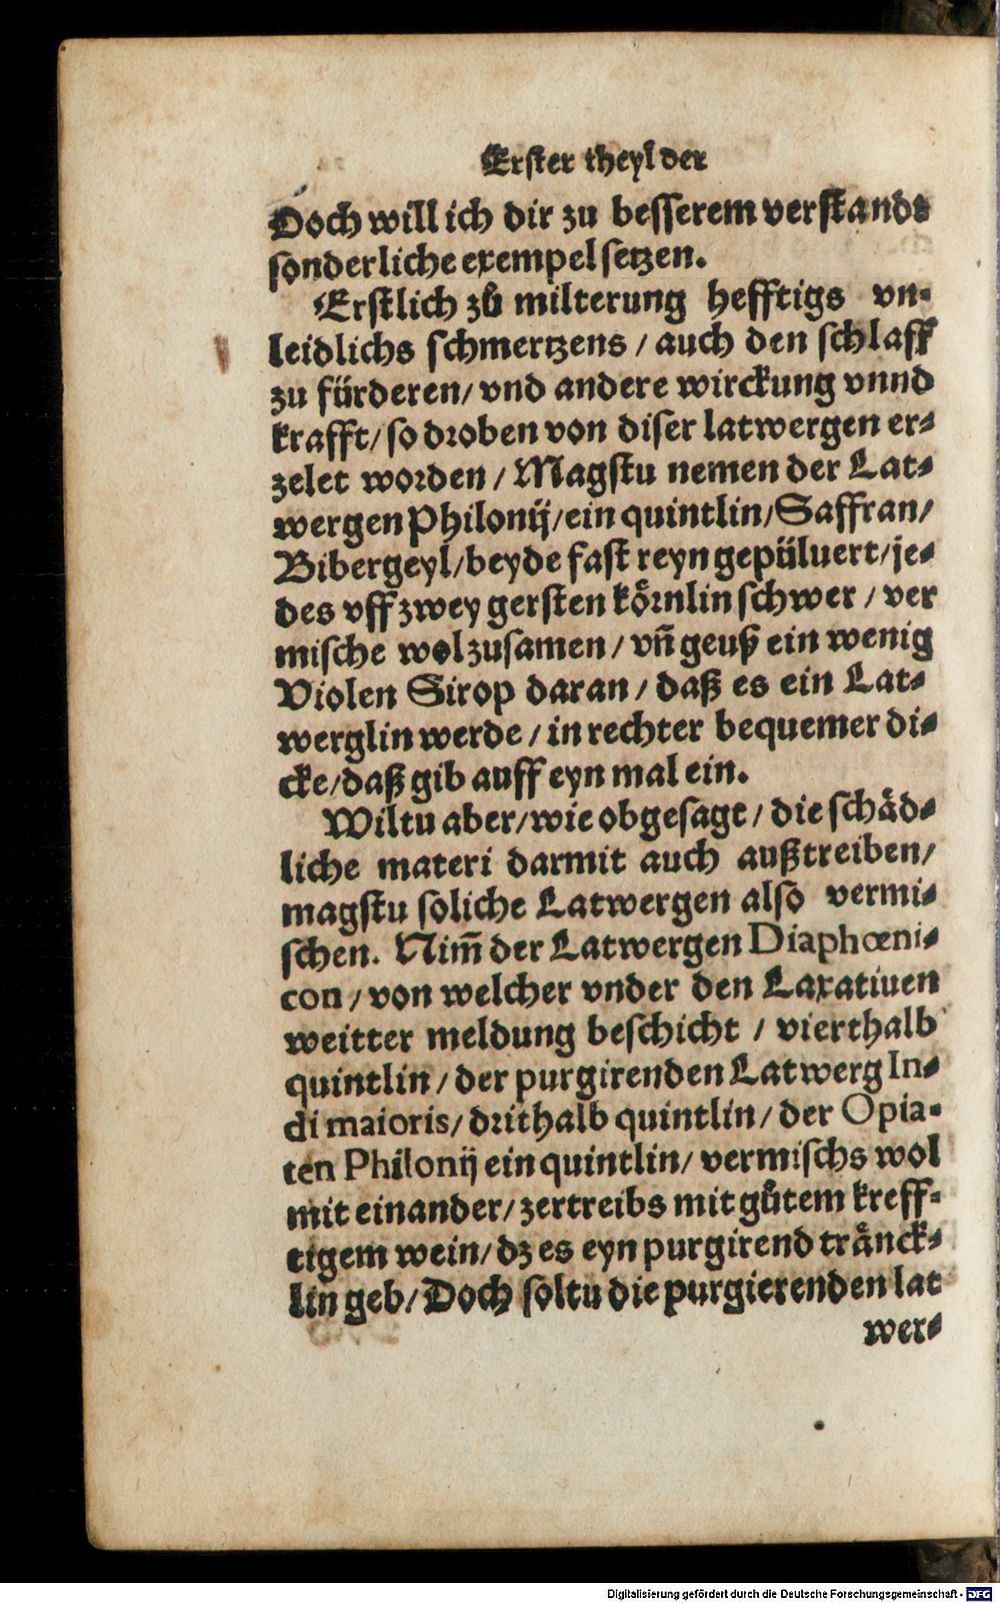 Erster theyl der
Doch will ich dir zu besserem verstande
sonderliche exempel setzen.
Erstlich zů milterung hefftigs vn-
leidlichs schmertzens / auch den schlaff
zu fürderen / vnd andere wirckung vnnd
krafft / so droben von diser latwergen er-
zelet worden / Magstu nemen der Lat-
wergen Philonij / ein quintlin / Saffran /
Bibergeyl / beyde fast reyn gepüluert / je-
des vff zwey gersten kőrnlin schwer / ver
mische wol zusamen / vñ geuß ein wenig
Violen Sirop daran / daß es ein Lat-
werglin werde / in rechter bequemer di-
cke / daß gib auff eyn mal ein.
Wiltu aber / wie obgesagt / die schäd-
liche materi darmit auch außtreiben /
magstu soliche Latwergen also vermi-
schen. Nim̃ der Latwergen Diaphœni-
con / von welcher vnder den Laxatiuen
weitter meldung beschicht / vierthalb
quintlin / der purgirenden Latwerg In-
di maioris / drithalb quintlin / der Opia-
ten Philonij ein quintlin / vermischs wol
mit einander / zertreibs mit gůtem kreff-
tigem wein / dz es eyn purgirend tränck-
lin geb / Doch soltu die purgierenden lat
wer-
Digitalisierung gefördert durch die Deutsche Forschungsgemeinschaft - DFG